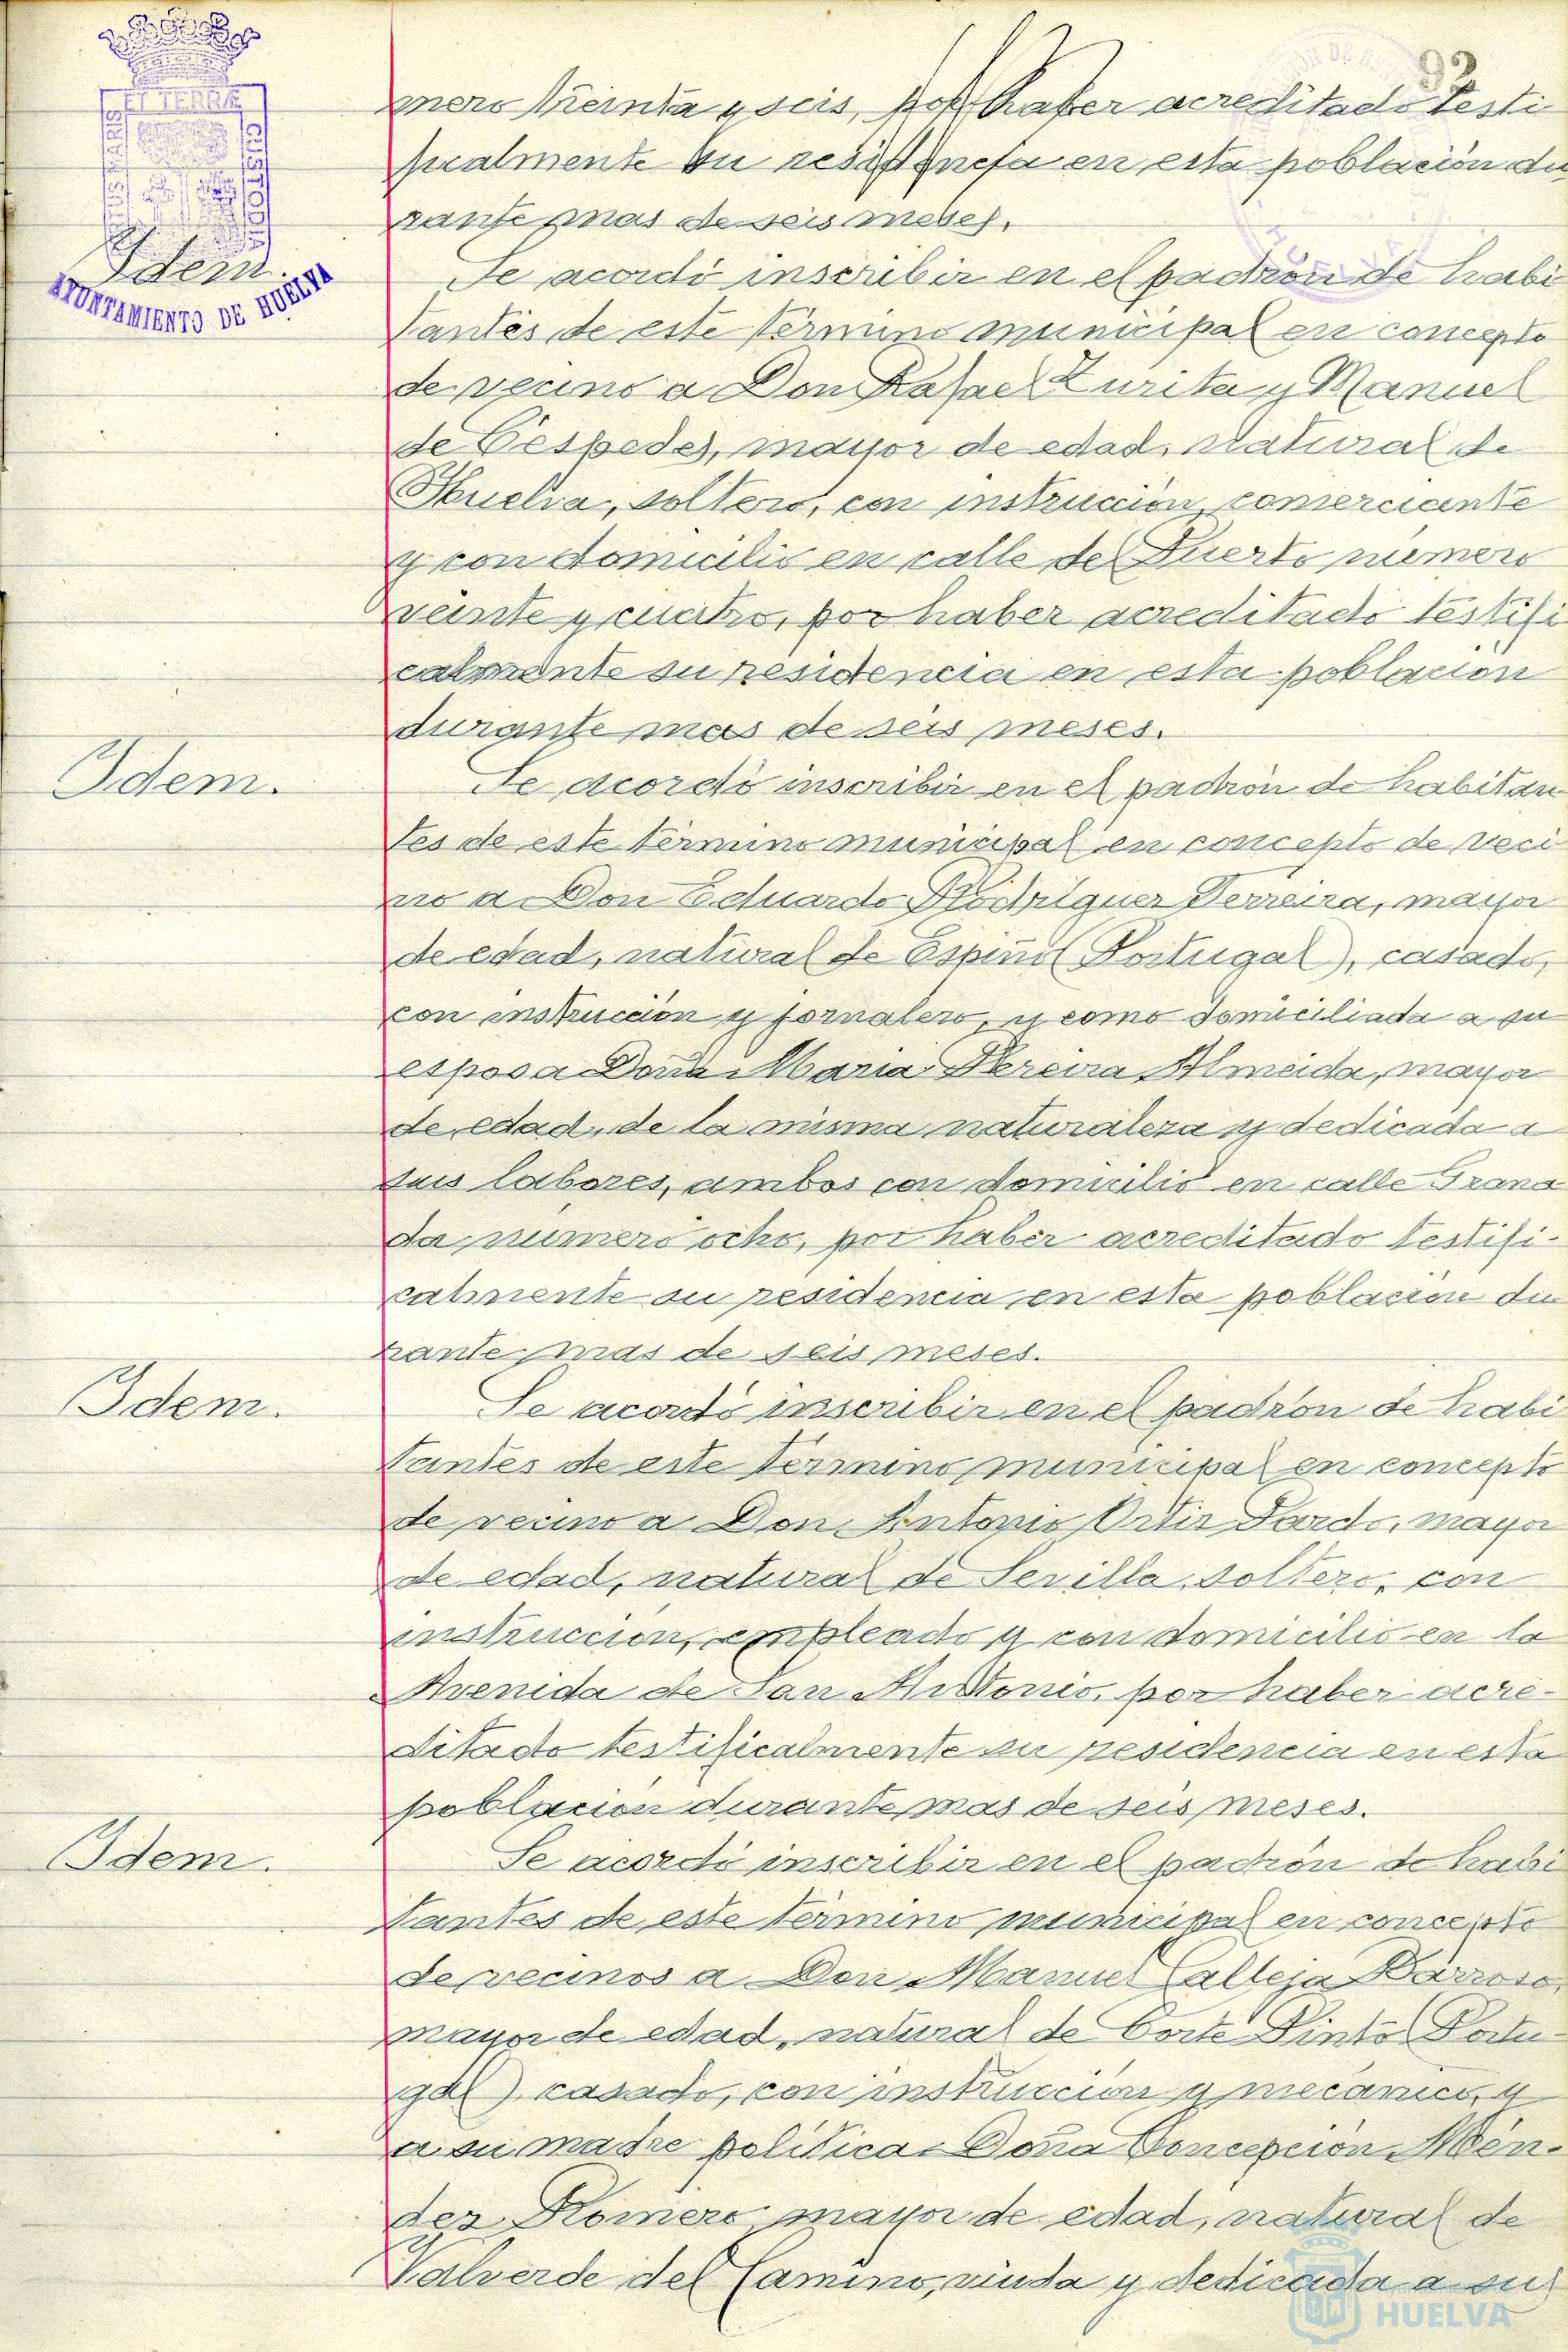 92
mero treinta y seis, por haber acreditado testi
ficalmente su residencia en esta población du
rante mas de seis meses.
ET TERRÆ
Idem.
AYUNTAMIENTO DE HUELVA
Se acordó inscribir en el padrón de habi
tantes de este término municipal en concepto
de vecino a Don Rafael Zurita y Manuel
de Céspedes, mayor de edad, natural de
Huelva, soltero, con instrucción, comerciante
y con domicilio en calle del Puerto número
veinte y cuatro, por haber acreditado testifi
calmente su residencia en esta población
durante mas de seis meses.
Idem.
Se acordó inscribir en el padrón de habitan
tes de este término municipal en concepto de veci
no a Don Eduardo Rodriguez Ferreira, mayor
de edad, natural de (Portugal), casado,
con instrucción y jornalero, y como domiciliada a su
esposa Doña Maria Pereira Almeida, mayor
de edad, de la misma naturaleza y dedicada a
sus labores, ambos con domicilio en calle Grana
da número ocho, por haber acreditado testifi-
calmente su residencia en esta población du
rante mas de seis meses.
Idem.
Se acordó inscribir en el padrón de habi
tantes de este término municipal en concepto
de vecino a Don Antonio Ortiz Pardo, mayor
de edad, natural de Sevilla, soltero, con
instrucción, empleado y con domicilio en la
Avenida de San Antonio, por haber acre-
ditado testificalmente su residencia en esta
población durante mas de seis meses.
Idem.
Se acordó inscribir en el padrón de habi
tantes de este término municipal en concepto
de vecinos a Don Manuel Calleja Barroso,
mayor de edad, natural de Corte Pinto (Portu-
gal), casado, con instrucción y mecánico, y
a su madre politica Doña Concepción Mén-
dez Romero mayor de edad, natural de
Valverde del Camino, viuda y dedicada a sus
HUELVA